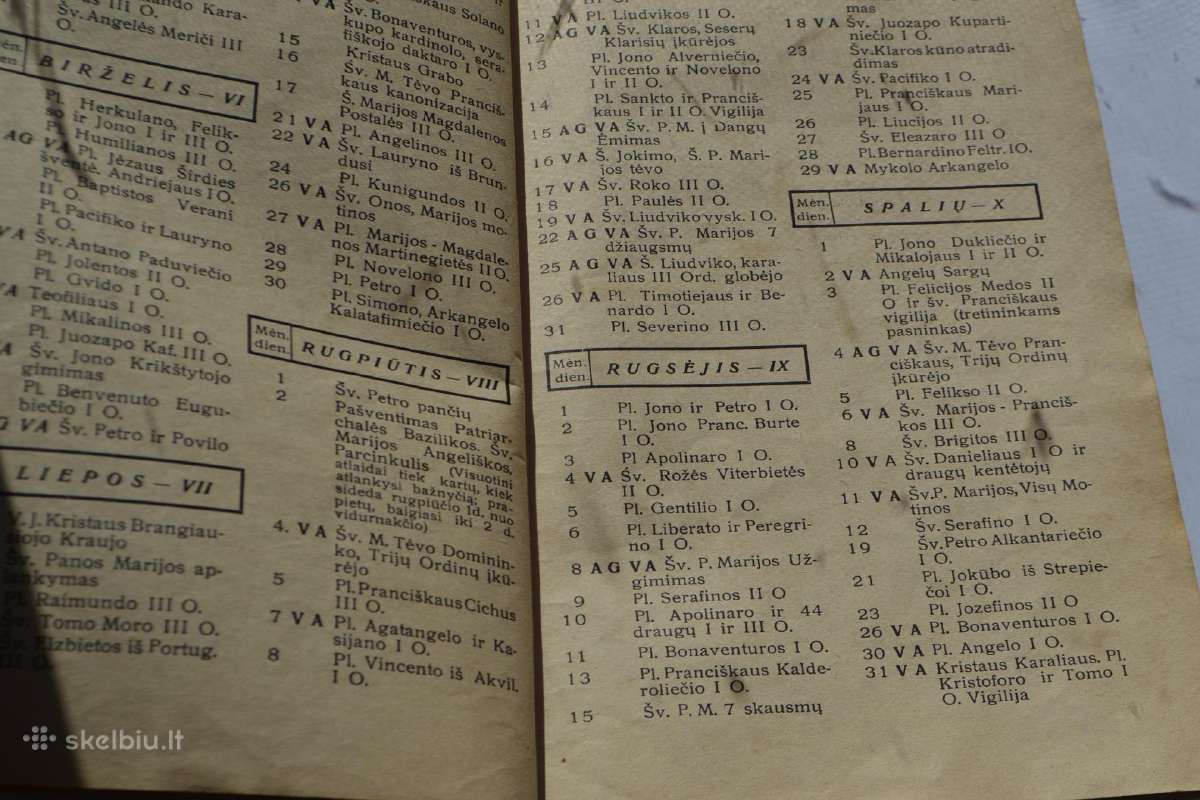 Šv. Angelės Meriči III
O.
Mėn.
dien.
BIRŽELIS — VI
Pl. Herkulano, Felik-
so ir Jono I ir III O.
Pl. Humilianos III O.
AG VA Pl. Jėzaus Širdies
šventė. Andriejaus I O.
Pl. Baptistos Verani
II O.
Pl. Pacifiko ir Lauryno
I O.
VA Šv. Antano Paduviečio
Pl. Jolentos II O.
Pl. Gvido I O.
VA Teofiliaus I O.
Pl. Mikalinos III O.
Pl. Juozapo Kaf. III O.
Šv. Jono Krikštytojo
gimimas
Pl. Benvenuto Eugu-
biečio I O.
G VA Šv. Petro ir Povilo
LIEPOS — VII
J. Kristaus Brangiau-
siojo Kraujo
Šv. Panos Marijos ap-
lankymas
Pl. Raimundo III O.
Tomo Moro III O.
Šv. Elzbietos iš Portug.
III O.
VA Šv. Bonaventuros, vys-
kupo kardinolo, sera-
fiškojo daktaro I O.
15 Kristaus Grabo
16 Šv. M. Tėvo Pranciš-
kaus kanonizacija
17 Š. Marijos Magdalenos
Postalės III O.
21 VA Pl. Angelinos III O.
22 VA Šv. Lauryno iš Brun-
dusi
24 Pl. Kunigundos II O.
26 VA Šv. Onos, Marijos mo-
tinos
27 VA Pl. Marijos - Magdale-
nos Martinegietės II O.
28 Pl. Novelono III O.
29 Pl. Petro I O.
30 Pl. Simono, Arkangelo
Kalatafimiečio I O.
Mėn.
dien.
RUGPIŪTIS — VIII
1 Šv. Petro pančių
2 Pašventimas Patriar-
chalės Bazilikos. Šv.
Marijos Angeliškos,
Parcinkulis (Visuotini
atlaidai tiek kartų, kiek
atlankysi bažnyčią; pra-
sideda rugpiūčio 1d. nuo
pietų, baigiasi iki 2 d.
vidurnakčio)
4. VA Šv. M. Tėvo Dominin-
ko, Trijų Ordinų įkū-
rėjo
5 Pl. Pranciškaus Cichus
III O.
7 VA Pl. Agatangelo ir Ka-
sijano I O.
8 Pl. Vincento iš Akvil.
I O.
11 VA Pl. Liudvikos II O.
12 AG VA Šv. Klaros, Seserų
Klarisių įkūrėjos
13 Pl. Jono Alverniečio,
Vincento ir Novelono
I ir II O.
14 Pl. Sankto ir Pranciš-
kaus I ir II O. Vigilija
15 AG VA Šv. P. M. į Dangų
Ėmimas
16 VA Š. Jokimo, Š. P. Mari-
jos tėvo
17 VA Šv. Roko III O.
18 Pl. Paulės II O.
19 VA Šv. Liudviko vysk. I O.
22 AG VA Šv. P. Marijos 7
džiaugsmų
25 AG VA Š. Liudviko, kara-
liaus III Ord. globėjo
26 VA Pl. Timotiejaus ir Be-
nardo I O.
31 Pl. Severino III O.
Mėn.
dien.
RUGSĖJIS — IX
1 Pl. Jono ir Petro I O.
2 Pl. Jono Pranc. Burte
I O.
3 Pl Apolinaro I O.
4 VA Šv. Rožės Viterbietės
II O.
5 Pl. Gentilio I O.
6 Pl. Liberato ir Peregri-
no I O.
8 AG VA Šv. P. Marijos Už-
gimimas
9 Pl. Serafinos II O
10 Pl. Apolinaro ir 44
draugų I ir III O.
11 Pl. Bonaventuros I O.
13 Pl. Pranciškaus Kalde-
roliečio I O.
15 Šv. P. M. 7 skausmų
mas
18 VA Šv. Juozapo Kuparti-
niečio I O.
23 Šv. Klaros kūno atradi-
dimas
24 VA Šv. Pacifiko I O.
25 Pl. Pranciškaus Mari-
jaus I O.
26 Pl. Liucijos II O.
27 Šv. Eleazaro III O
28 Pl. Bernardino Feltr. IO.
29 VA Mykolo Arkangelo
Mėn.
dien.
SPALIŲ — X
1 Pl. Jono Dukliečio ir
Mikalojaus I ir II O.
2 VA Angelų Sargų
3 Pl. Felicijos Medos II
O ir šv. Pranciškaus
vigilija (tretininkams
pasninkas)
4 AG VA Šv. M. Tėvo Pran-
ciškaus, Trijų Ordinų
įkūrėjo
5 Pl. Felikso II O.
6 VA Šv. Marijos - Pranciš-
kos III O.
8 Šv. Brigitos III O.
10 VA Šv. Danieliaus I O ir
draugų kentėtojų
11 VA Šv.P. Marijos, Visų Mo-
tinos
12 Šv. Serafino I O.
19 Šv. Petro Alkantariečio
I O.
21 Pl. Jokūbo iš Strepie-
čoi I O.
23 Pl. Jozefinos II O
26 VA Pl. Bonaventuros I O.
30 VA Pl. Angelo I O.
31 VA Kristaus Karaliaus. Pl.
Kristoforo ir Tomo I
O. Vigilija
skelbiu.lt